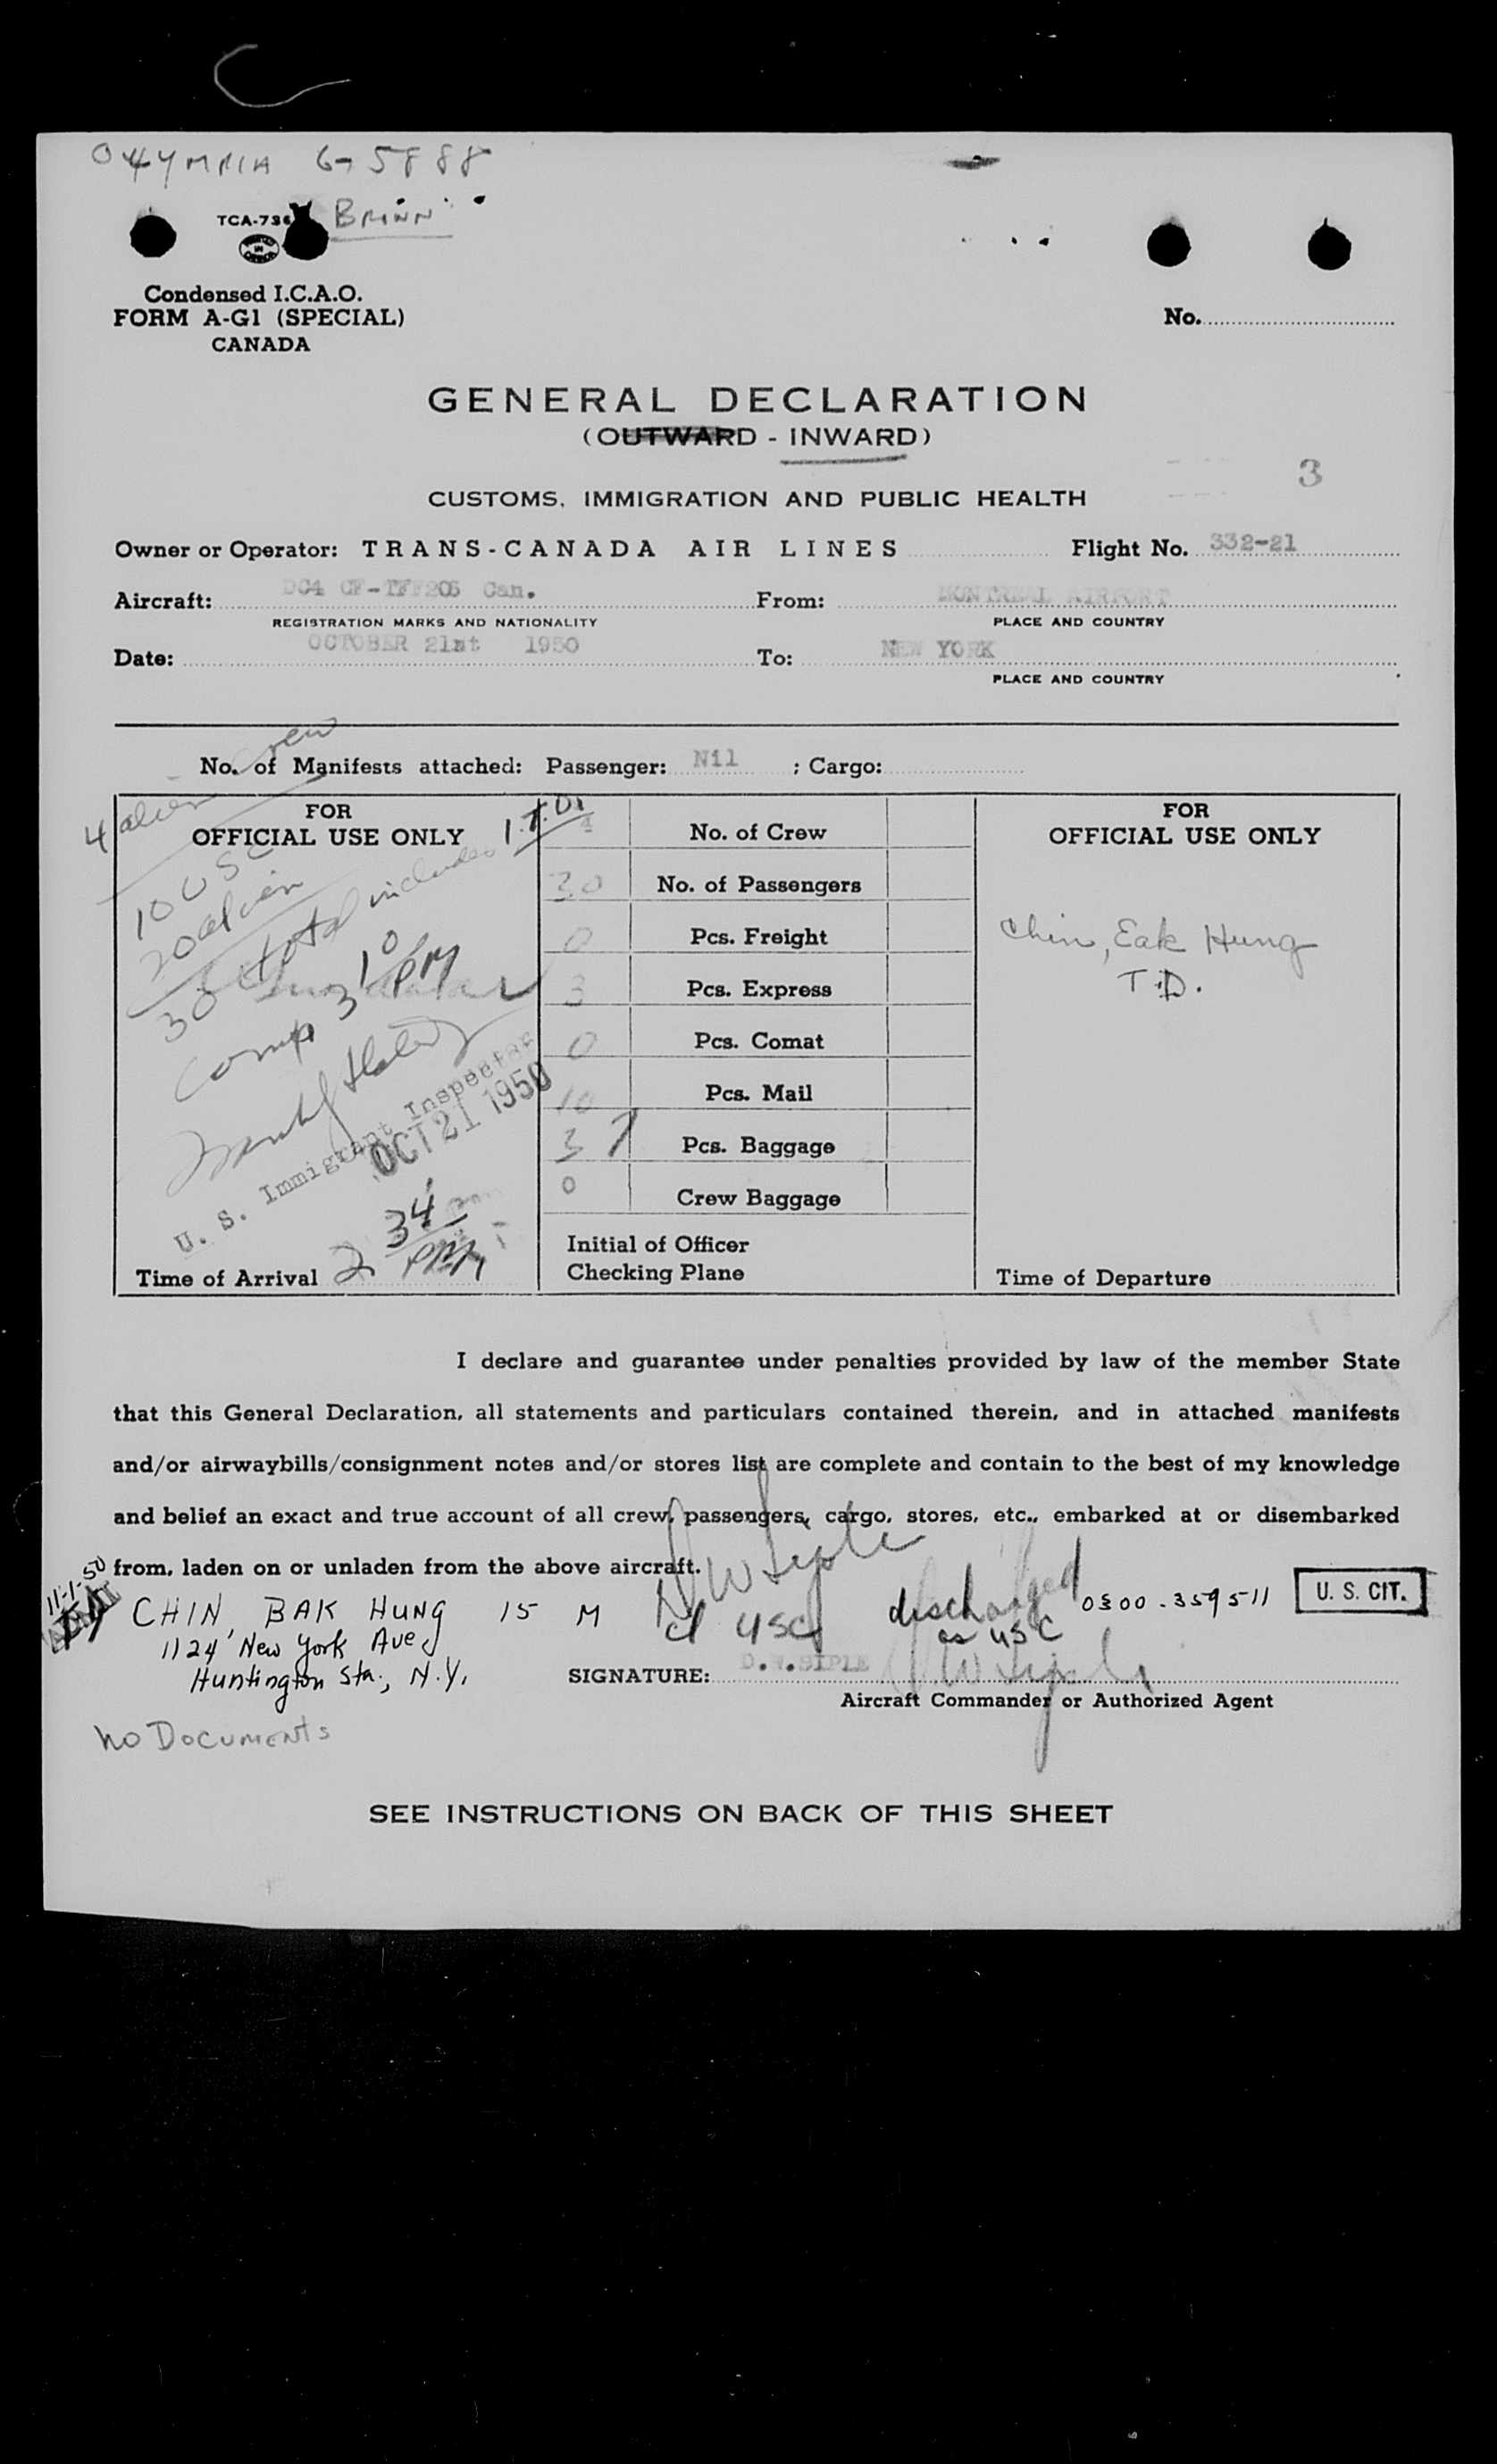 OLYMPIA 6-5888
TCA-736
BRINN
Condensed I.C.A.O.
FORM A-G1 (SPECIAL)
CANADA
No.
GENERAL DECLARATION
(OUTWARD - INWARD)
3
CUSTOMS, IMMIGRATION AND PUBLIC HEALTH
Owner or Operator: TRANS-CANADA AIR LINES Flight No. 332-21
Aircraft: DC4 Can. From: MONTREAL AIRPORT
REGISTRATION MARKS AND NATIONALITY PLACE AND COUNTRY
Date: OCTOBER 21st 1950 To: NEW YORK
PLACE AND COUNTRY
No. of Manifests attached: Passenger: Nil ; Cargo:
4 alien crew
FOR
OFFICIAL USE ONLY
1 T.D.
10 USC
20 alien
30 total includes
Comp 3 10 PM
U. S. Immigrant Inspector
OCT 21 1950
Time of Arrival 2 34 PM
4 No. of Crew
30 No. of Passengers
0 Pcs. Freight
3 Pcs. Express
0 Pcs. Comat
10 Pcs. Mail
37 Pcs. Baggage
0 Crew Baggage
Initial of Officer
Checking Plane
FOR
OFFICIAL USE ONLY
Chin, Eak Hung
T.D.
Time of Departure
I declare and guarantee under penalties provided by law of the member State
that this General Declaration, all statements and particulars contained therein, and in attached manifests
and/or airwaybills/consignment notes and/or stores list are complete and contain to the best of my knowledge
and belief an exact and true account of all crew, passengers, cargo, stores, etc., embarked at or disembarked
from, laden on or unladen from the above aircraft.
DW Siple
11-1-50
CHIN, BAK HUNG 15 M cl USC discharged as USC 0300-359511 U. S. CIT.
1124 New York Ave
Huntington Sta., N.Y.
SIGNATURE: D.W.SIPLE DW Siple
Aircraft Commander or Authorized Agent
No Documents
SEE INSTRUCTIONS ON BACK OF THIS SHEET